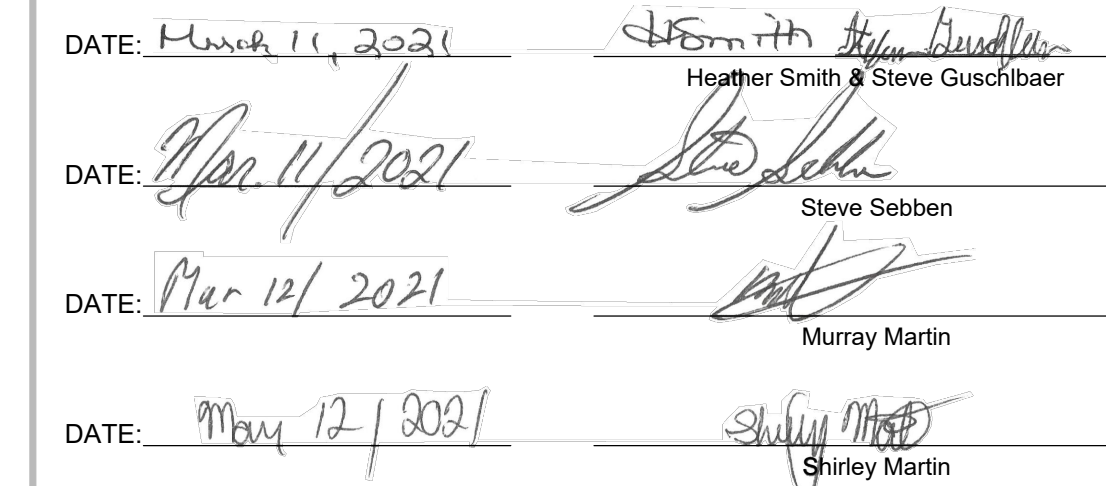 DATE: March 11, 2021 HSmith Steven Guschlbaer
Heather Smith & Steve Guschlbaer
DATE: Mar. 11/2021 Steve Sebben
Steve Sebben
DATE: Mar 12/ 2021
Murray Martin
DATE: May 12/2021 Shirley
Shirley Martin